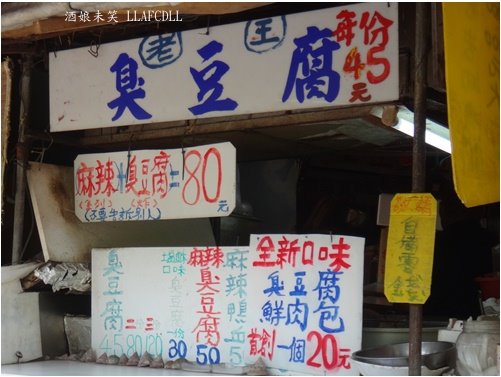 酒娘未笑 LLAFCDLL
老王
臭豆腐
每份45元
麻辣+臭豆腐=80元
臭豆腐
二 三
45 80 120
麻辣臭豆腐
50
麻辣鴨血
全新口味
臭豆腐
鮮肉包
首創一個20元
自備零錢